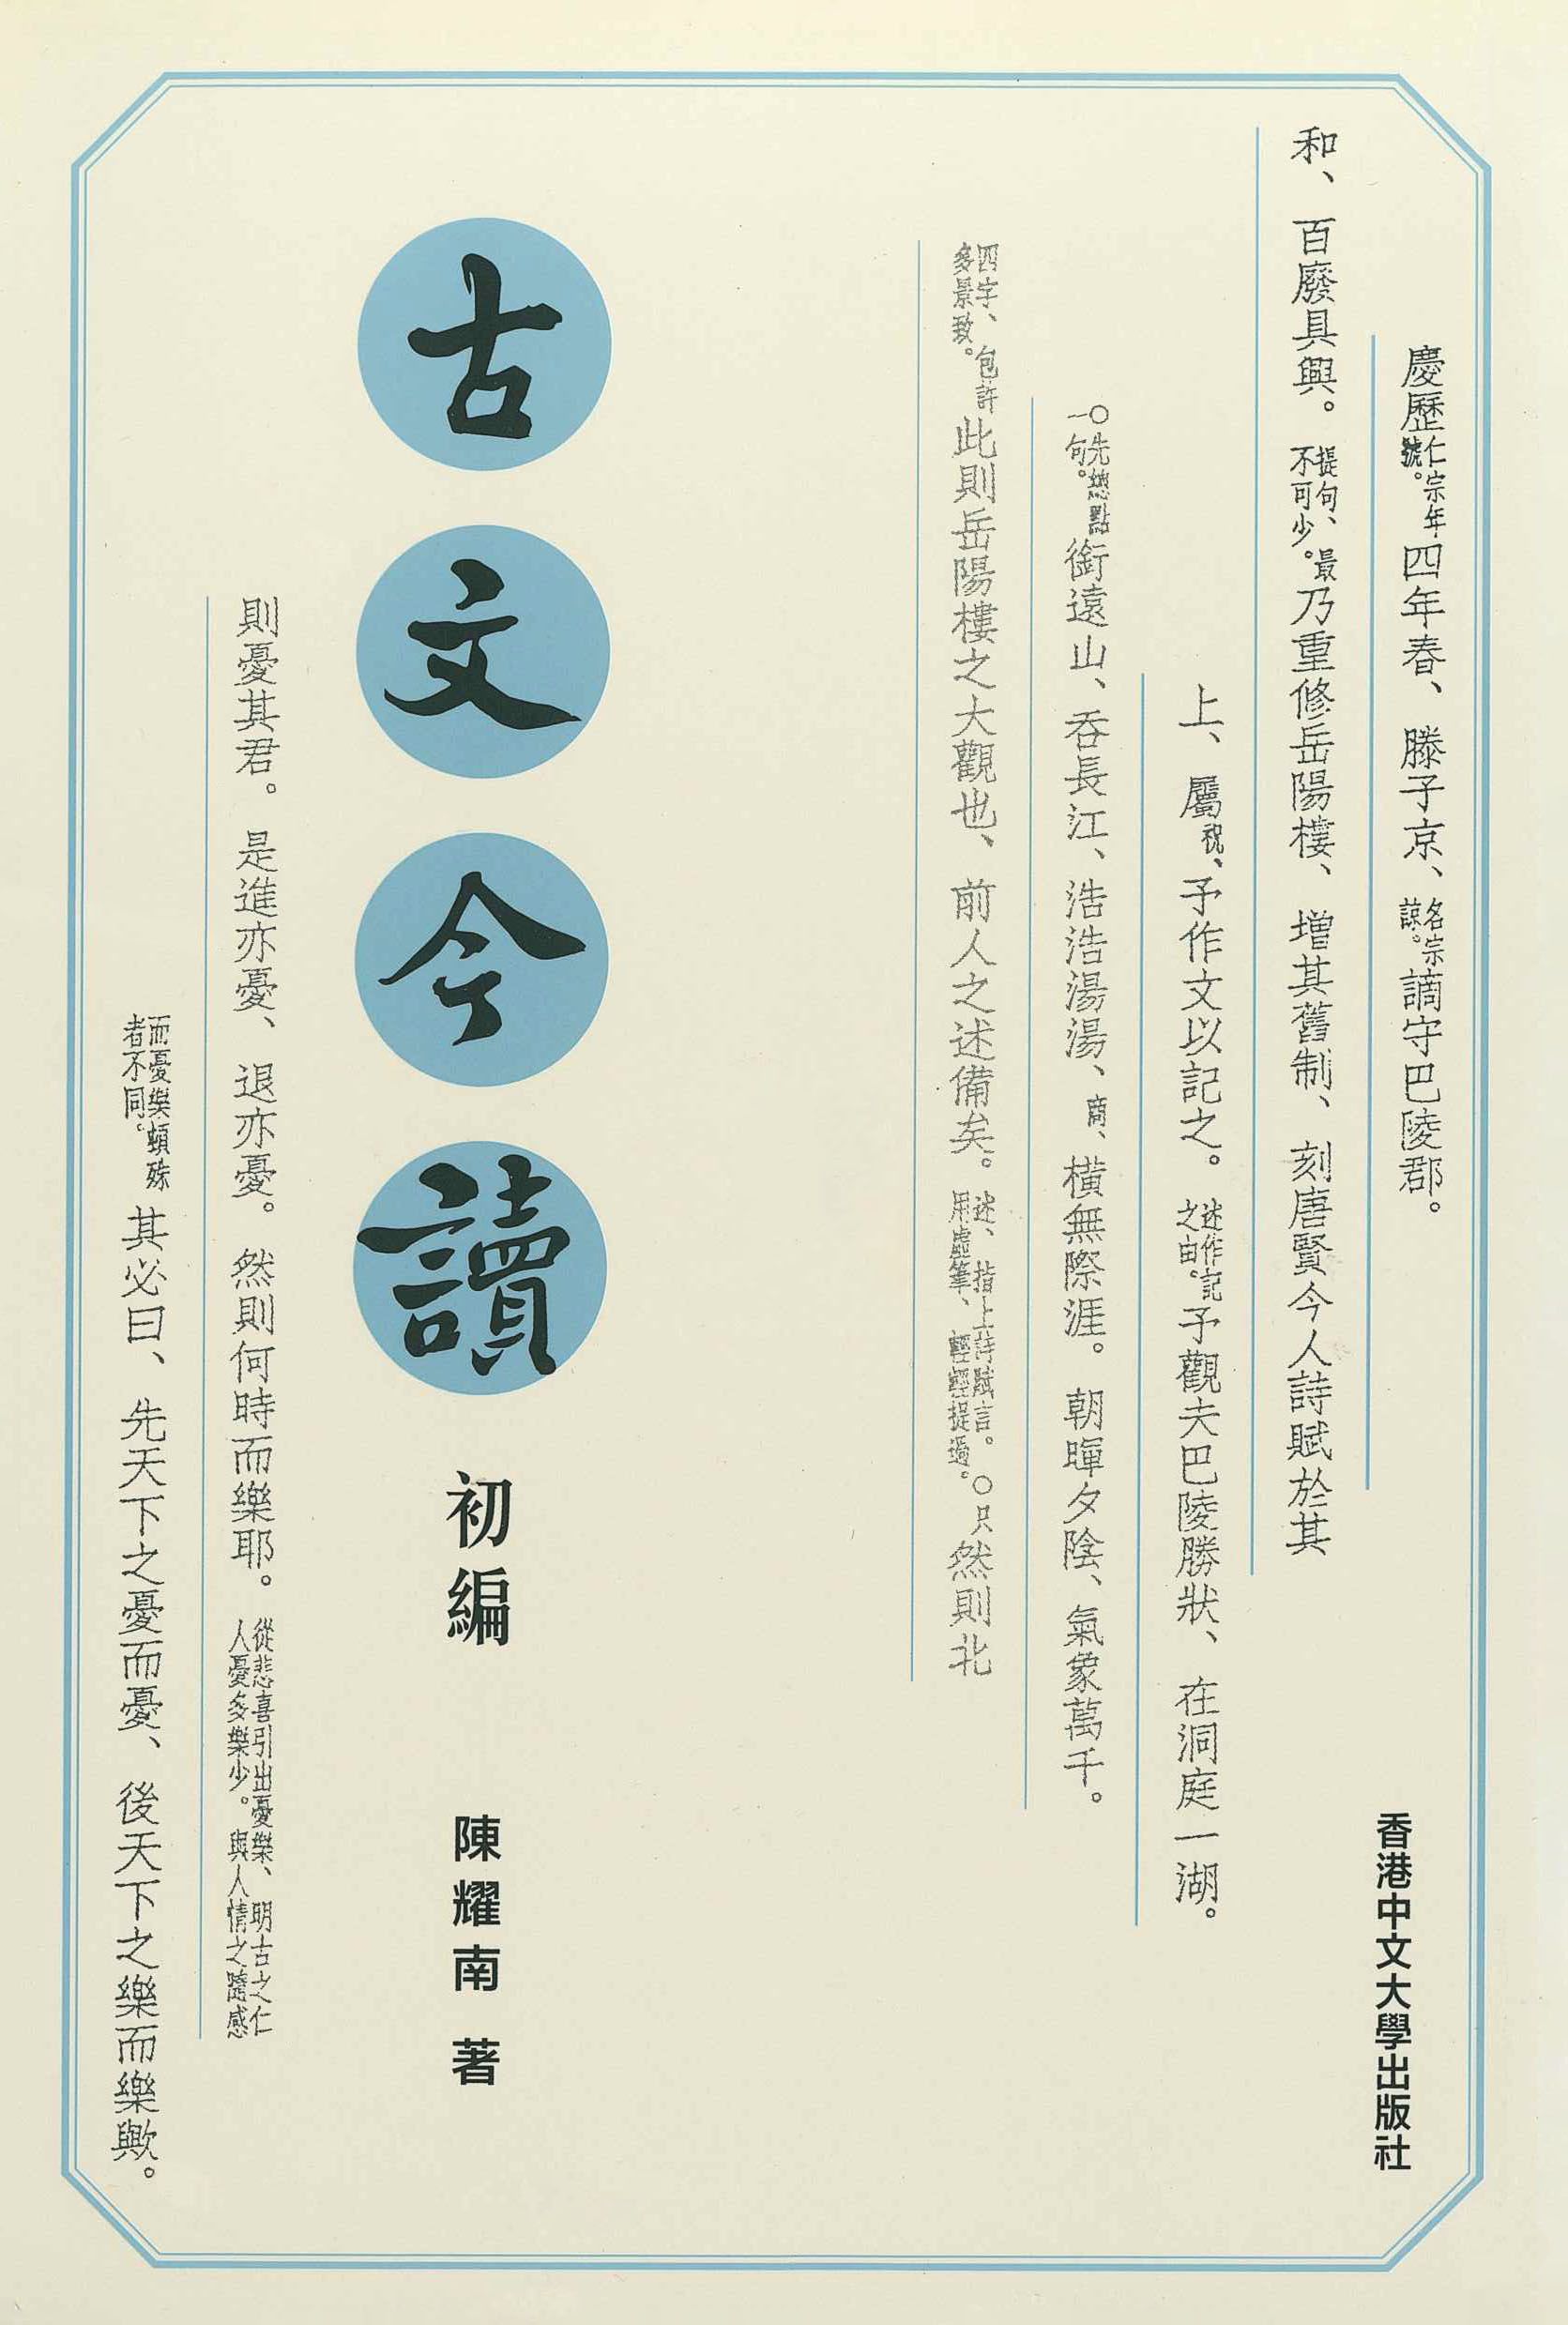 慶歷仁宗年號。四年春、滕子京、名宗諒。謫守巴陵郡。
和、百廢具興。提句、最不可少。乃重修岳陽樓、增其舊制、刻唐賢今人詩賦於其
上、屬祝、予作文以記之。述作記之由。予觀夫巴陵勝狀、在洞庭一湖。
〇先總點一句。銜遠山、吞長江、浩浩湯湯、商、橫無際涯。朝暉夕陰、氣象萬千。
四字、包許多景致。此則岳陽樓之大觀也、前人之述備矣。述、指上詩賦言。〇只用虛筆、輕輕提過。然則北
古文今讀
初編
陳耀南 著
則憂其君。是進亦憂、退亦憂。然則何時而樂耶。從悲喜引出憂樂、明古之仁人憂多樂少。與人情之隨感
而憂樂頓殊者不同。其必曰、先天下之憂而憂、後天下之樂而樂歟。
香港中文大學出版社